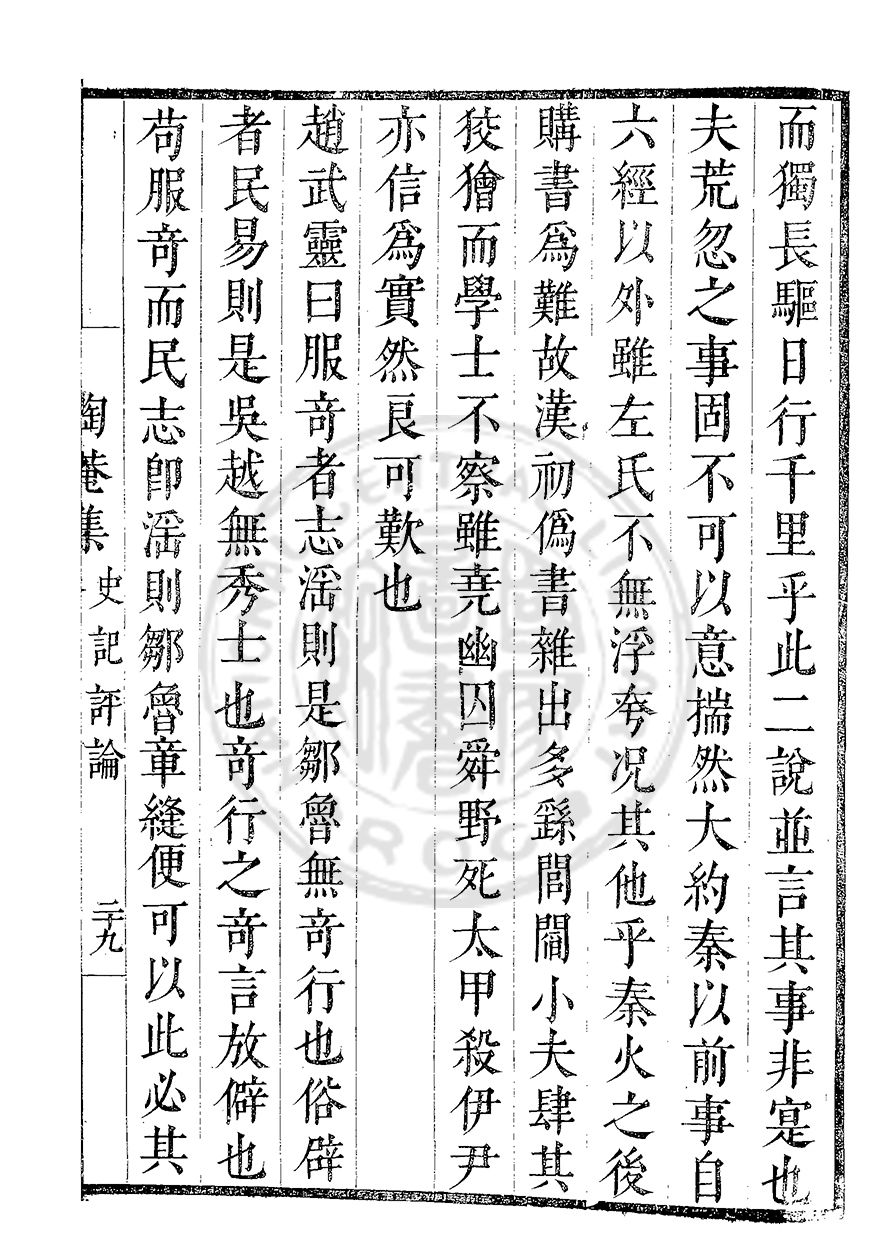 而獨長驅日行千里乎此二說並言其事非寔也
夫荒忽之事固不可以意揣然大約秦以前事自
六經以外雖左氏不無浮夸况其他乎秦火之後
購書爲難故漢初僞書雜出多繇閭閻小夫肆其
狡獪而學士不察雖堯幽囚舜野死太甲殺伊尹
亦信爲實然良可歎也
趙武靈曰服奇者志滛則是鄒魯無奇行也俗辟
者民易則是吳越無秀士也奇行之奇言放僻也
苟服奇而民志卽滛則鄒魯章縫便可以此必其
陶菴集 史記評論 二十九